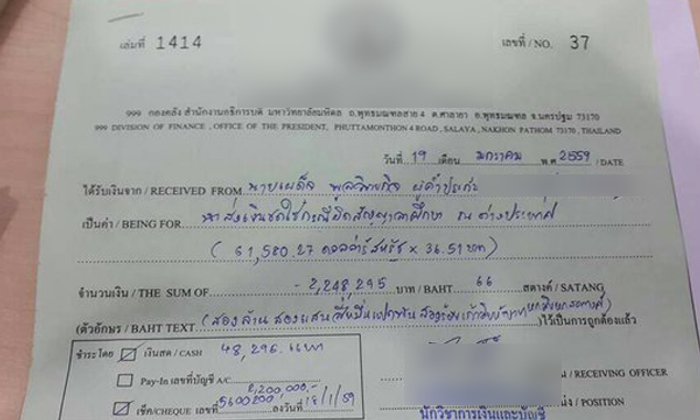 เล่มที่ 1414 เลขที่ / NO. 37
999 กองคลัง สำนักงานอธิการบดี มหาวิทยาลัยมหิดล ถ.พุทธมณฑลสาย 4 ต.ศาลายา อ.พุทธมณฑล จ.นครปฐม 73170
999 DIVISION OF FINANCE , OFFICE OF THE PRESIDENT, PHUTTAMONTHON 4 ROAD , SALAYA , NAKHON PATHOM 73170 , THAILAND
วันที่ 19 เดือน มกราคม พ.ศ 2559 / DATE
ได้รับเงินจาก / RECEIVED FROM นายเผด็จ พูลวิทยกิจ ผู้ค้ำประกัน
เป็นค่า / BEING FOR นำส่งเงินชดใช้กรณีผิดสัญญาลาศึกษา ณ ต่างประเทศ
( 61,580.27 ดอลล่าร์สหรัฐ × 36.51 บาท )
จำนวนเงิน / THE SUM OF - 2,248,295 บาท / BAHT 66 สตางค์ / SATANG
(ตัวอักษร / BAHT TEXT (สองล้านสองแสนสี่หมื่นแปดพันสองร้อยเก้าสิบห้าบาทหกสิบหกสตางค์) ไว้เป็นการถูกต้องแล้ว
ชำระโดย เงินสด / CASH 48,296 บาท
Pay-In เลขที่บัญชี A/C / RECEIVING OFFICER
2,200,000.-
เช็ค/CHEQUE เลขที่ 5600200 ลงวันที่ 18/1/59 / POSITION
นักวิชาการเงินและบัญชี